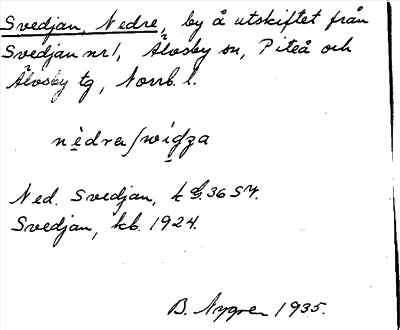 Svedjan, Nedre, by å utskiftet från
Svedjan nr 1, Älvsby sn, Piteå och
Älvsby tg, Norrb. l.
Ned. Svedjan, k 36 SV.
Svedjan, kb. 1924.
B. Nygren 1935.